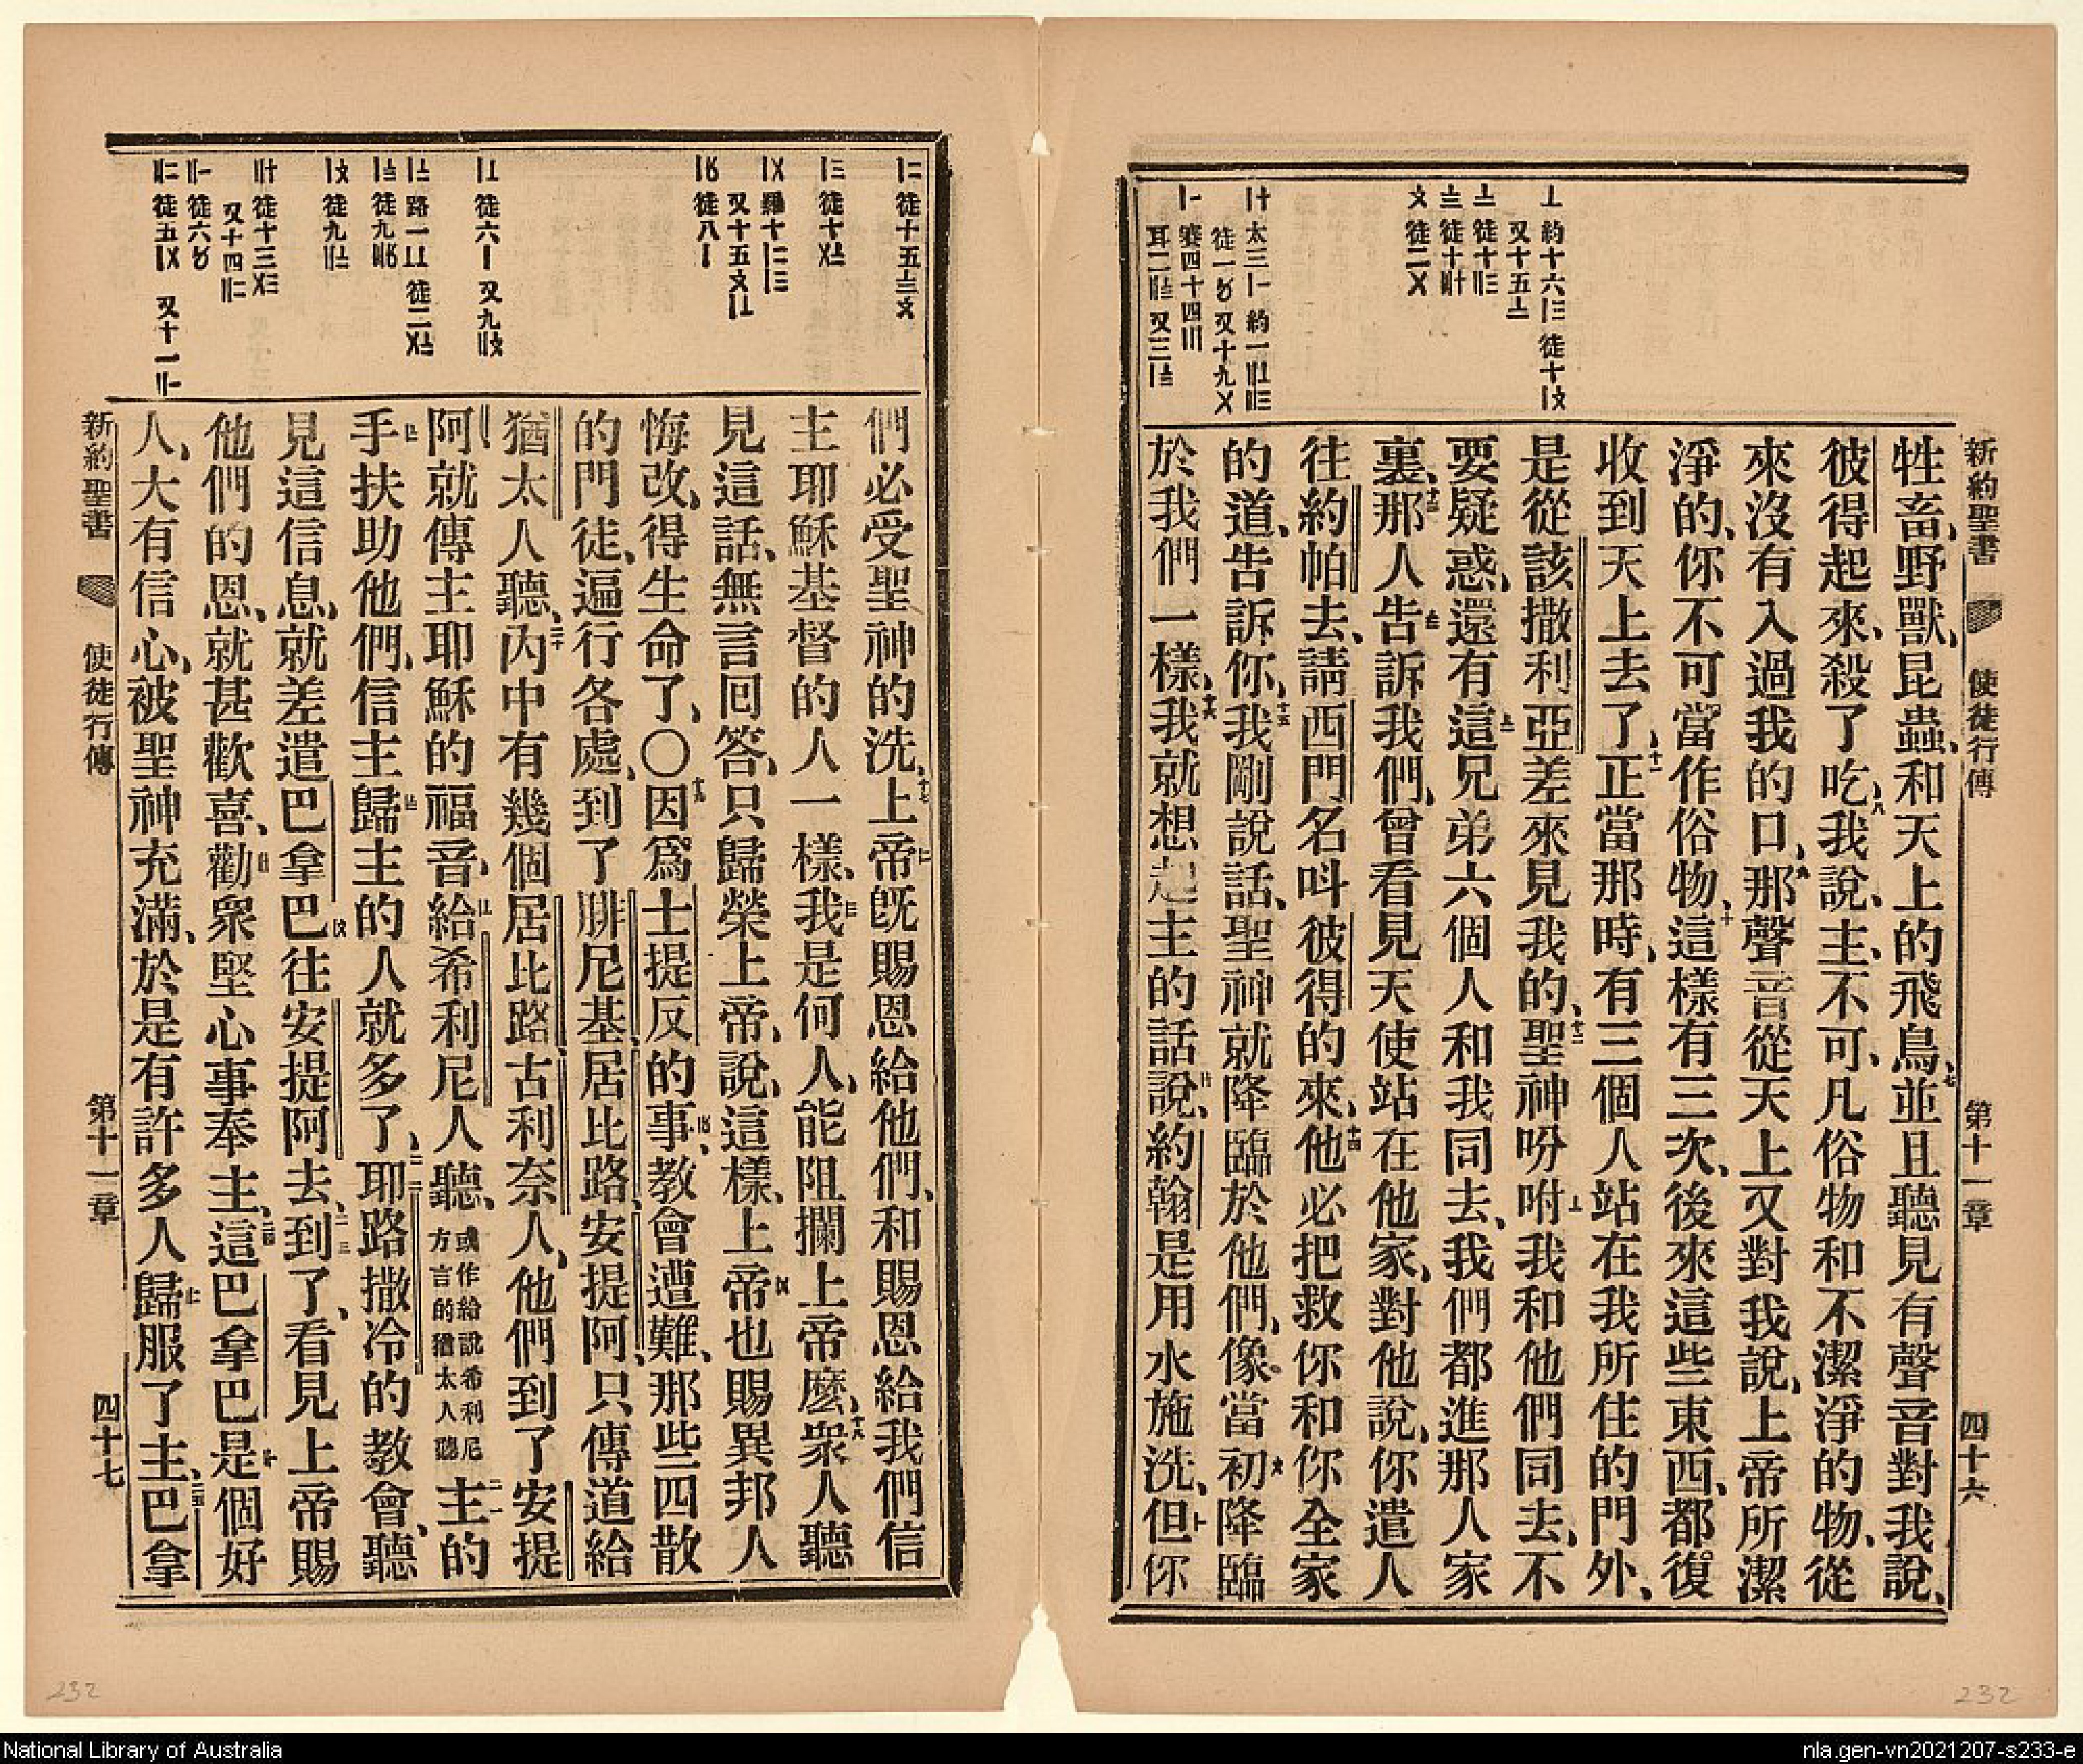 新約聖書 使徒行傳 第十一章 四十六
牲畜、野獸、昆蟲、和天上的飛鳥、七並且聽見有聲音對我說、
彼得起來、殺了吃、八我說、主、不可、凡俗物和不潔淨的物、從
來沒有入過我的口、九那聲音從天上又對我說、上帝所潔
淨的、你不可當作俗物、十這樣有三次、後來這些東西、都復
收到天上去了、十一正當那時、有三個人站在我所住的門外、
是從該撒利亞差來見我的、十二聖神吩咐我和他們同去、不
要疑惑、還有這兄弟六個人和我同去、我們都進那人家
裏、十三那人告訴我們、曾看見天使站在他家、對他說、你遣人
往約帕去、請西門名呌彼得的來、十四他必把救你和你全家
的道、告訴你、十五我剛說話、聖神就降臨於他們、像當初降臨
於我們一樣、十六我就想起主的話說、約翰是用水施洗、但你
們必受聖神的洗、十七上帝旣賜恩給他們、和賜恩給我們信
主耶穌基督的人一樣、我是何人、能阻攔上帝麽、十八衆人聽
見這話、無言回答、只歸榮上帝、說、這樣、上帝也賜異邦人
悔改、得生命了、〇十九因爲士提反的事、教會遭難、那些四散
的門徒、遍行各處、到了腓尼基、居比路、安提阿、只傳道給
猶太人聽、二十內中有幾個居比路、古利奈人、他們到了安提
阿就傳主耶穌的福音、給希利尼人聽、或作給說希利尼方言的猶太人聽二一主的
手扶助他們、信主歸主的人就多了、二二耶路撒冷的教會、聽
見這信息、就差遣巴拿巴往安提阿去、二三到了、看見上帝賜
他們的恩、就甚歡喜、勸衆堅心事奉主、二四這巴拿巴是個好
人、大有信心、被聖神充滿、於是有許多人歸服了主、二五巴拿
新約聖書 使徒行傳 第十一章 四十七
232
232
National Library of Australia
nla.gen-vn2021207-s233-e